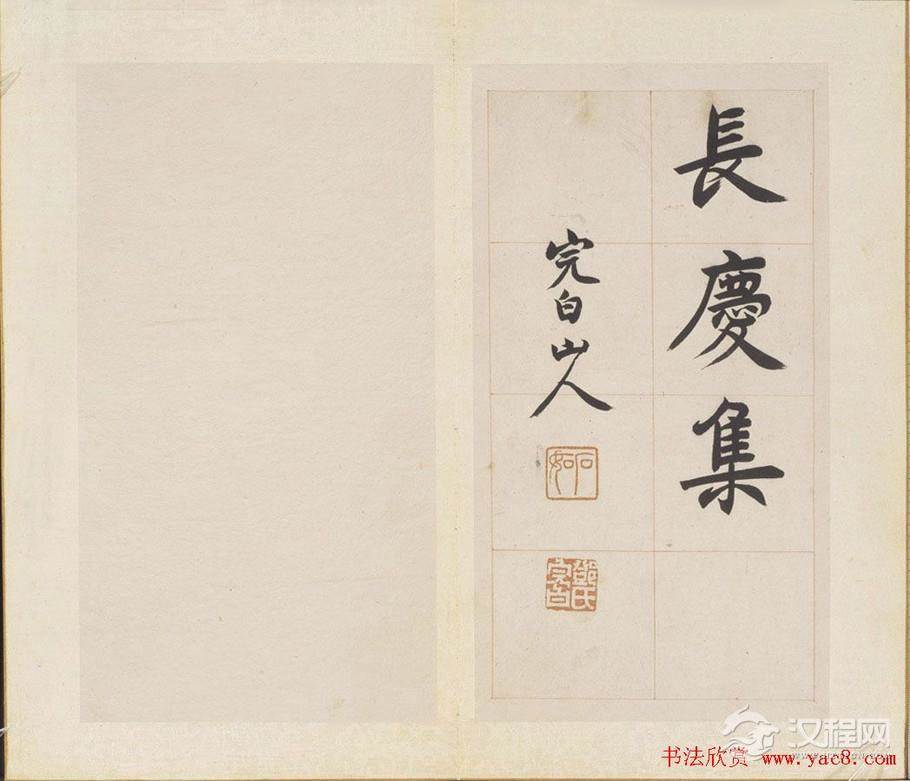 長慶集
完白山人
石如
鄧氏完白
汉程网
书法欣赏 www.yac8.com